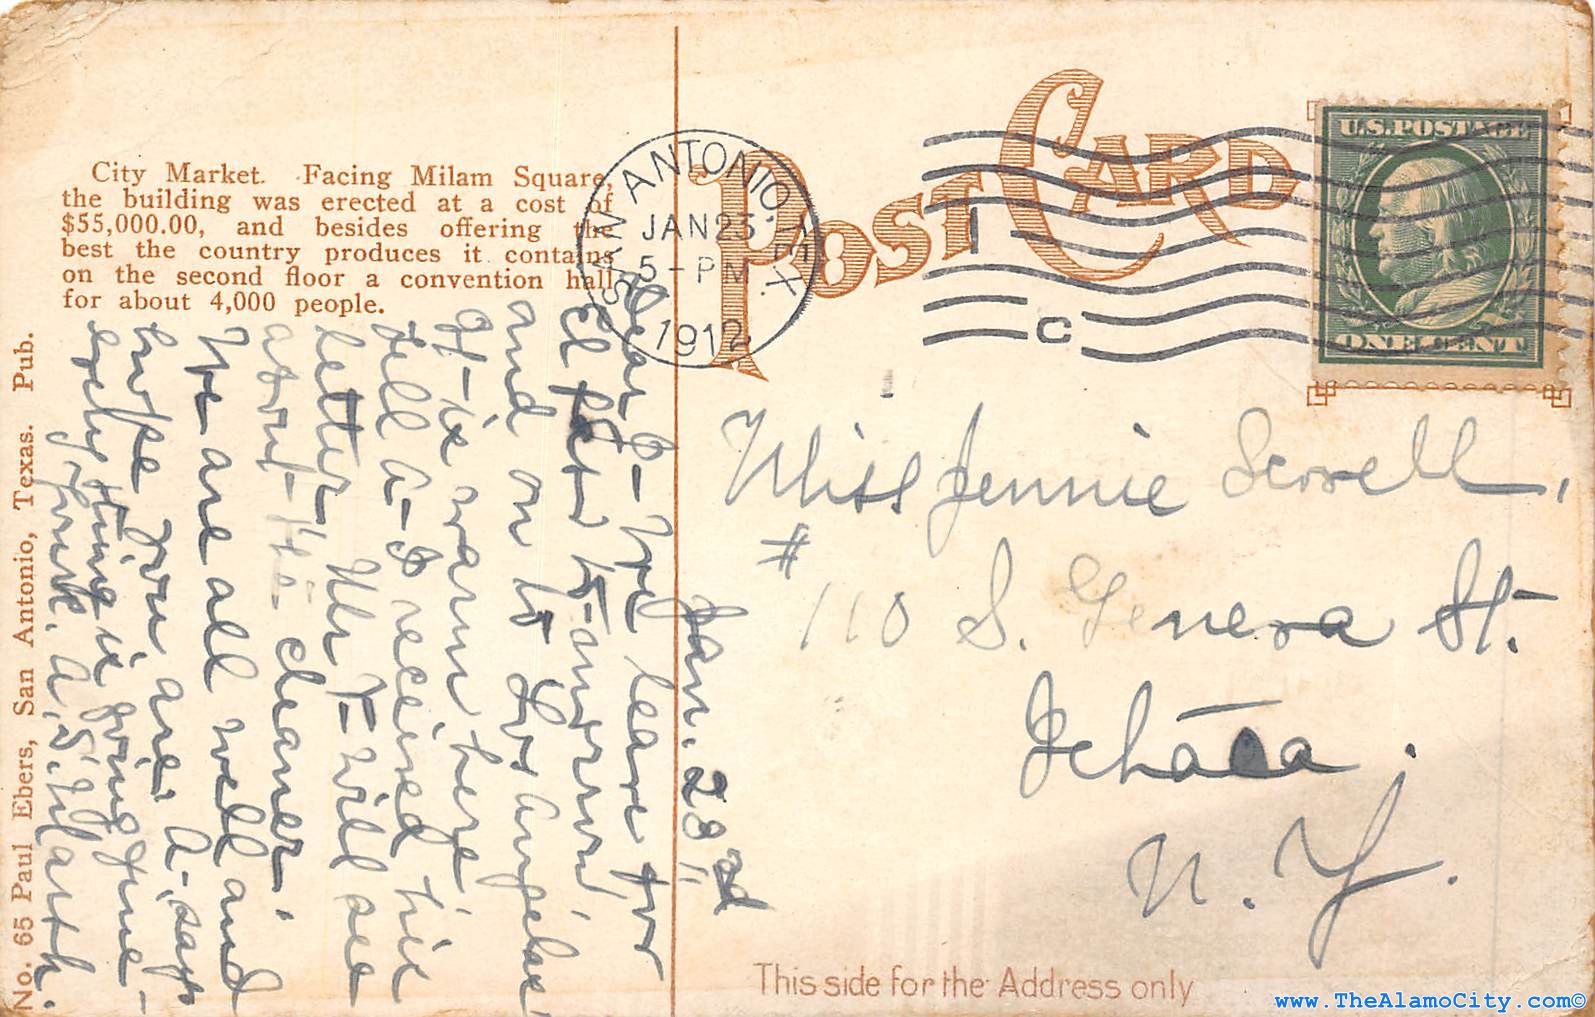 City Market. Facing Milam Square,
the building was erected at a cost of
$55,000.00, and besides offering the
best the country produces it contains
on the second floor a convention hall
for about 4,000 people.
No. 65 Paul Ebers, San Antonio, Texas. Pub.
POST CARD
SAN ANTONIO, TEX.
JAN 23
5-PM
1912
1
C
U.S. POSTAGE
ONE CENT
Miss Jennie Sewell,
#
110 S. Geneva St.
Ithaca.
N.Y.
Jan. 23rd
Dear J- We leave for
El Paso to-morrow
and on to Los Angeles
It is warm here.
Tell A- I received his
letter. Mr F- will see
about the cleaner.
We are all well and
hope you are. A- says
everything is going fine-
Love. A.S.
This side for the Address only
www.TheAlamoCity.com©